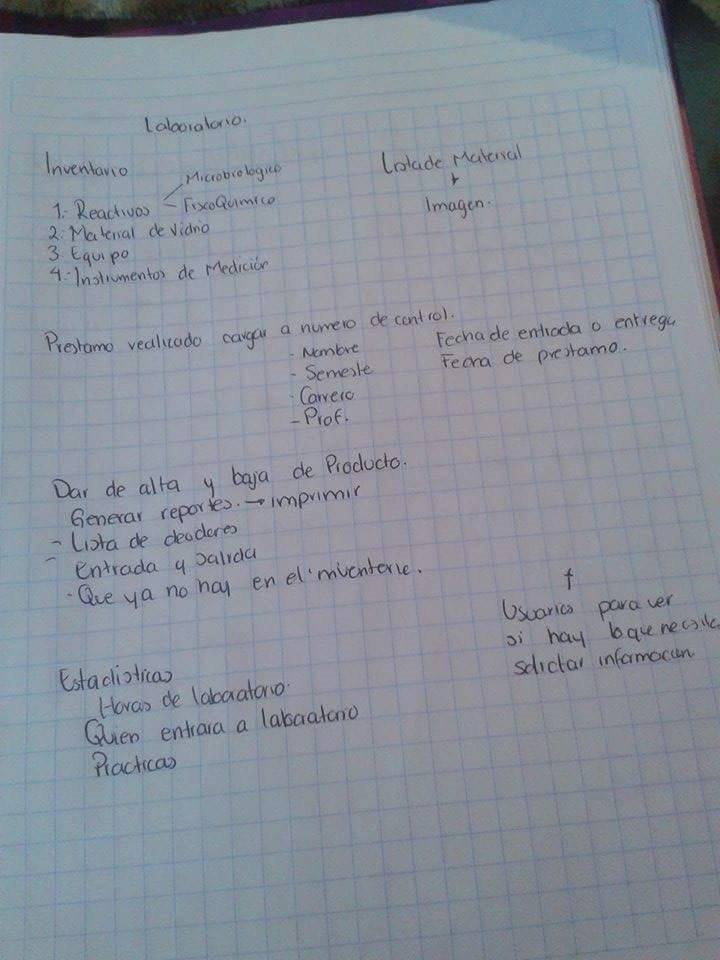 Laboratorio.
Inventario
Microbiologico
1.- Reactivos - FisicoQuimico
2.- Material de vidrio
3 Equipo
4.- Instrumentos de Medición
Lista de Material
+
Imagen.
Prestamo realizado cargar a numero de control.
- Nombre
- Semestre
- Carrera
- Prof.
Fecha de entrada o entrega
Fecha de prestamo.
Dar de alta y baja de Producto.
Generar reportes. → imprimir
- Lista de deudores
- Entrada y salida
- Que ya no hay en el inventario.
Usuarios para ver
si hay lo que necesita
solicitar informacion
Estadisticas
Horas de laboratorio.
Quien entrara a laboratorio
Practicas